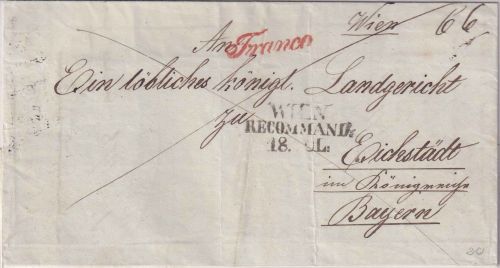 Wien 66
An Franco
Ein löbliches königl. Landgericht
zu
WIEN
RECOMMAND:
18. JUL:
Eichstädt
im Königreiche
Bayern